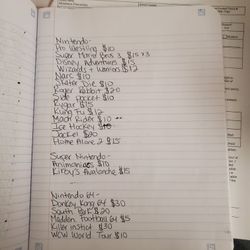 Nintendo-
Pro Wrestling $10
Super Mario Bros 3 $15 x3
Disney Adventures $15
Wizards + Warriors $12
Narc $10
Skate or Die $10
Roger Rabbit $20
Side Pocket $10
Rygar $15
Kung Fu $12
Mach Rider $10
Ice Hockey
Jackal $20
Home Alone 2 $15
Super Nintendo-
Animaniacs $10
Kirby's Avalanche $15
Nintendo 64-
Donkey Kong 64 $30
South Park $20
Madden Football 64 $5
Killer instinct $30
WCW World Tour $10